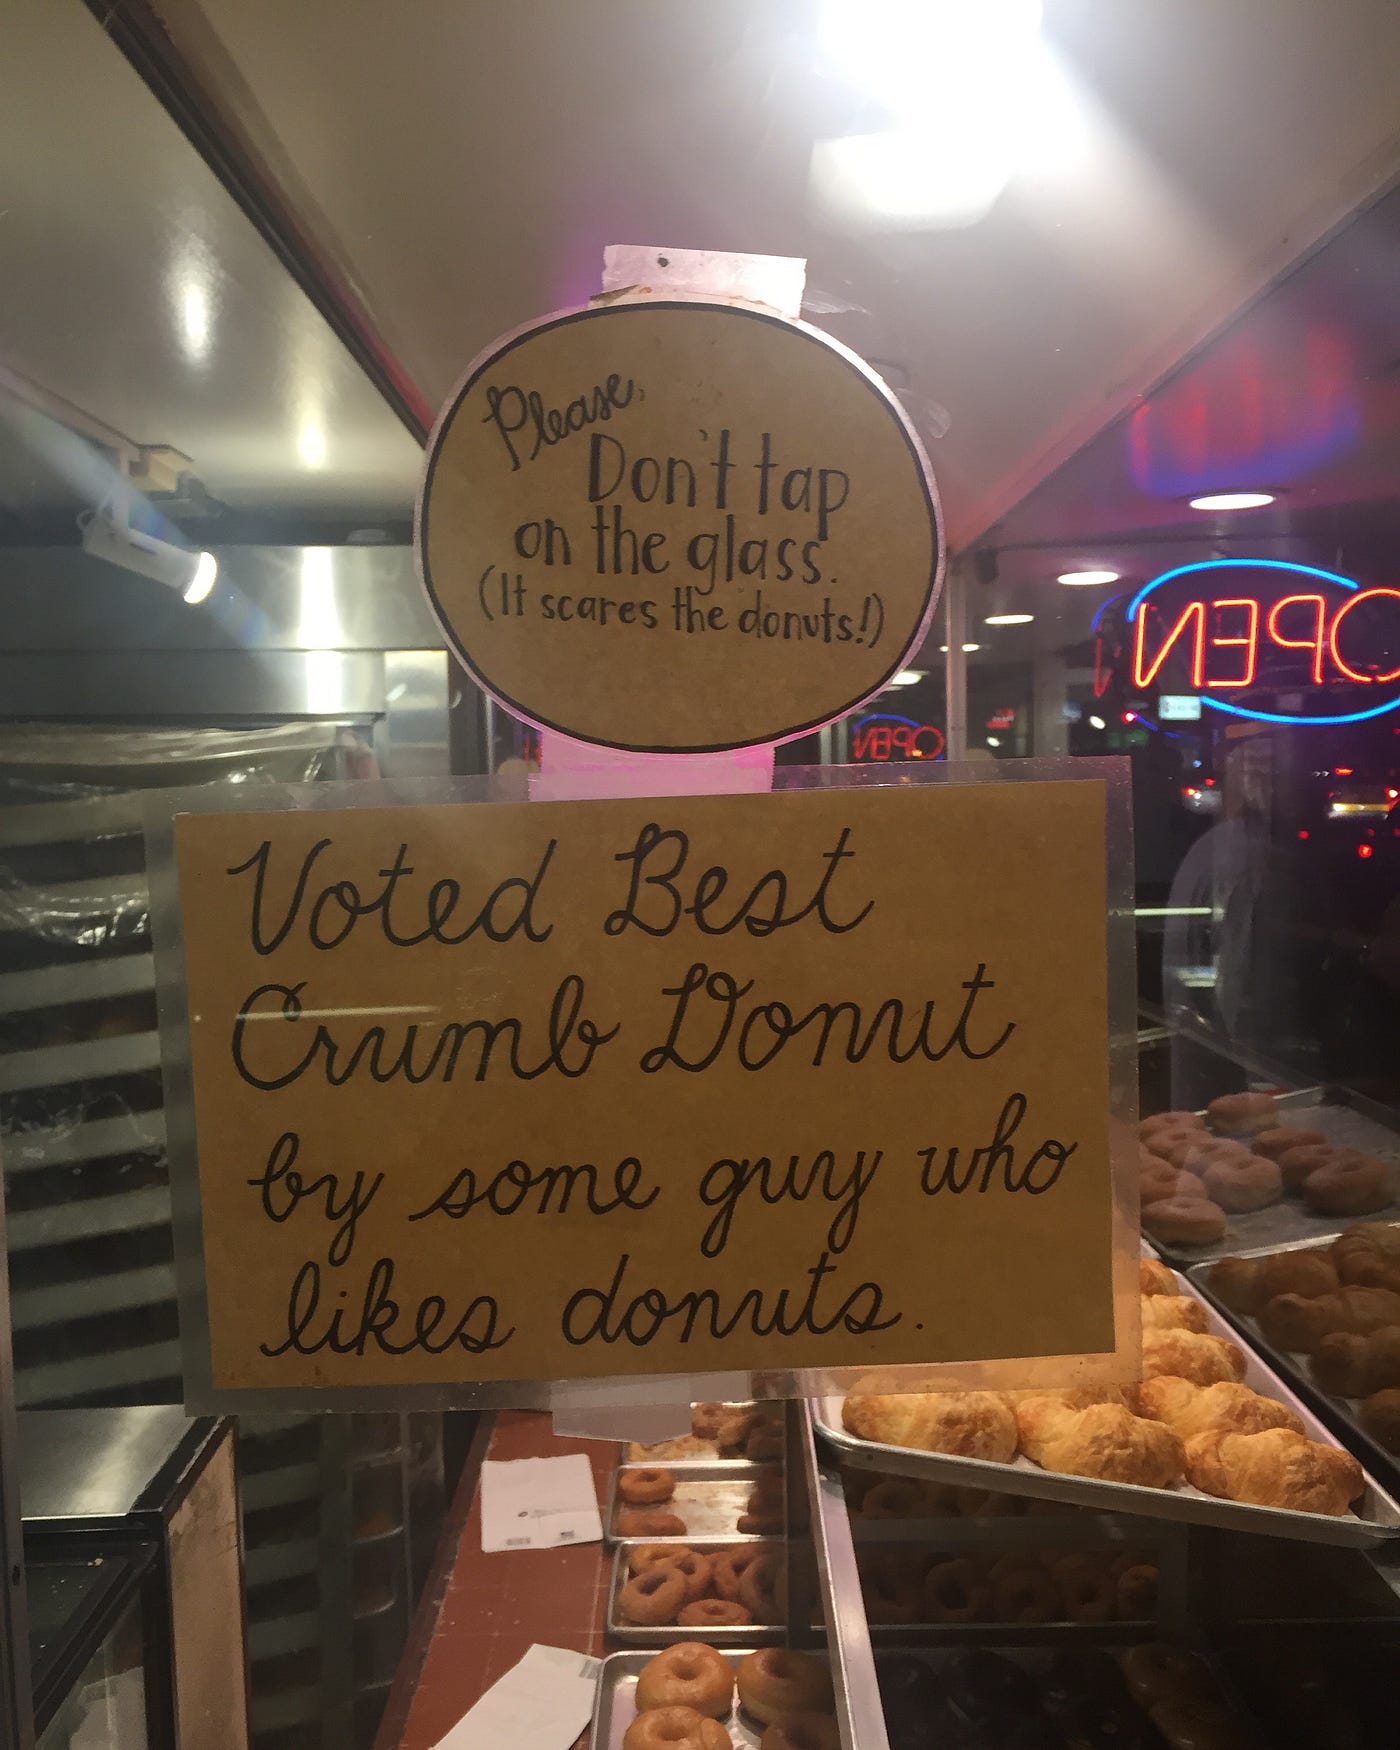 Please,
Don't tap
on the glass.
(It scares the donuts!)
OPEN
OPEN
Voted Best
Crumb Donut
by some guy who
likes donuts.